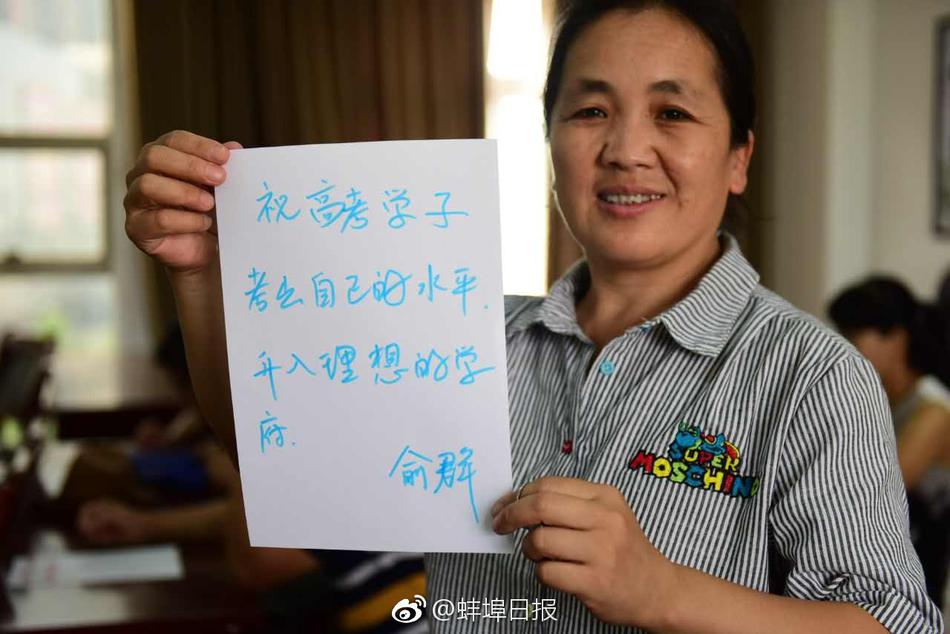 祝高考学子
考出自己的水平.
升入理想的学
府.
俞群
SUPER
MOSCHINO
@蚌埠日报